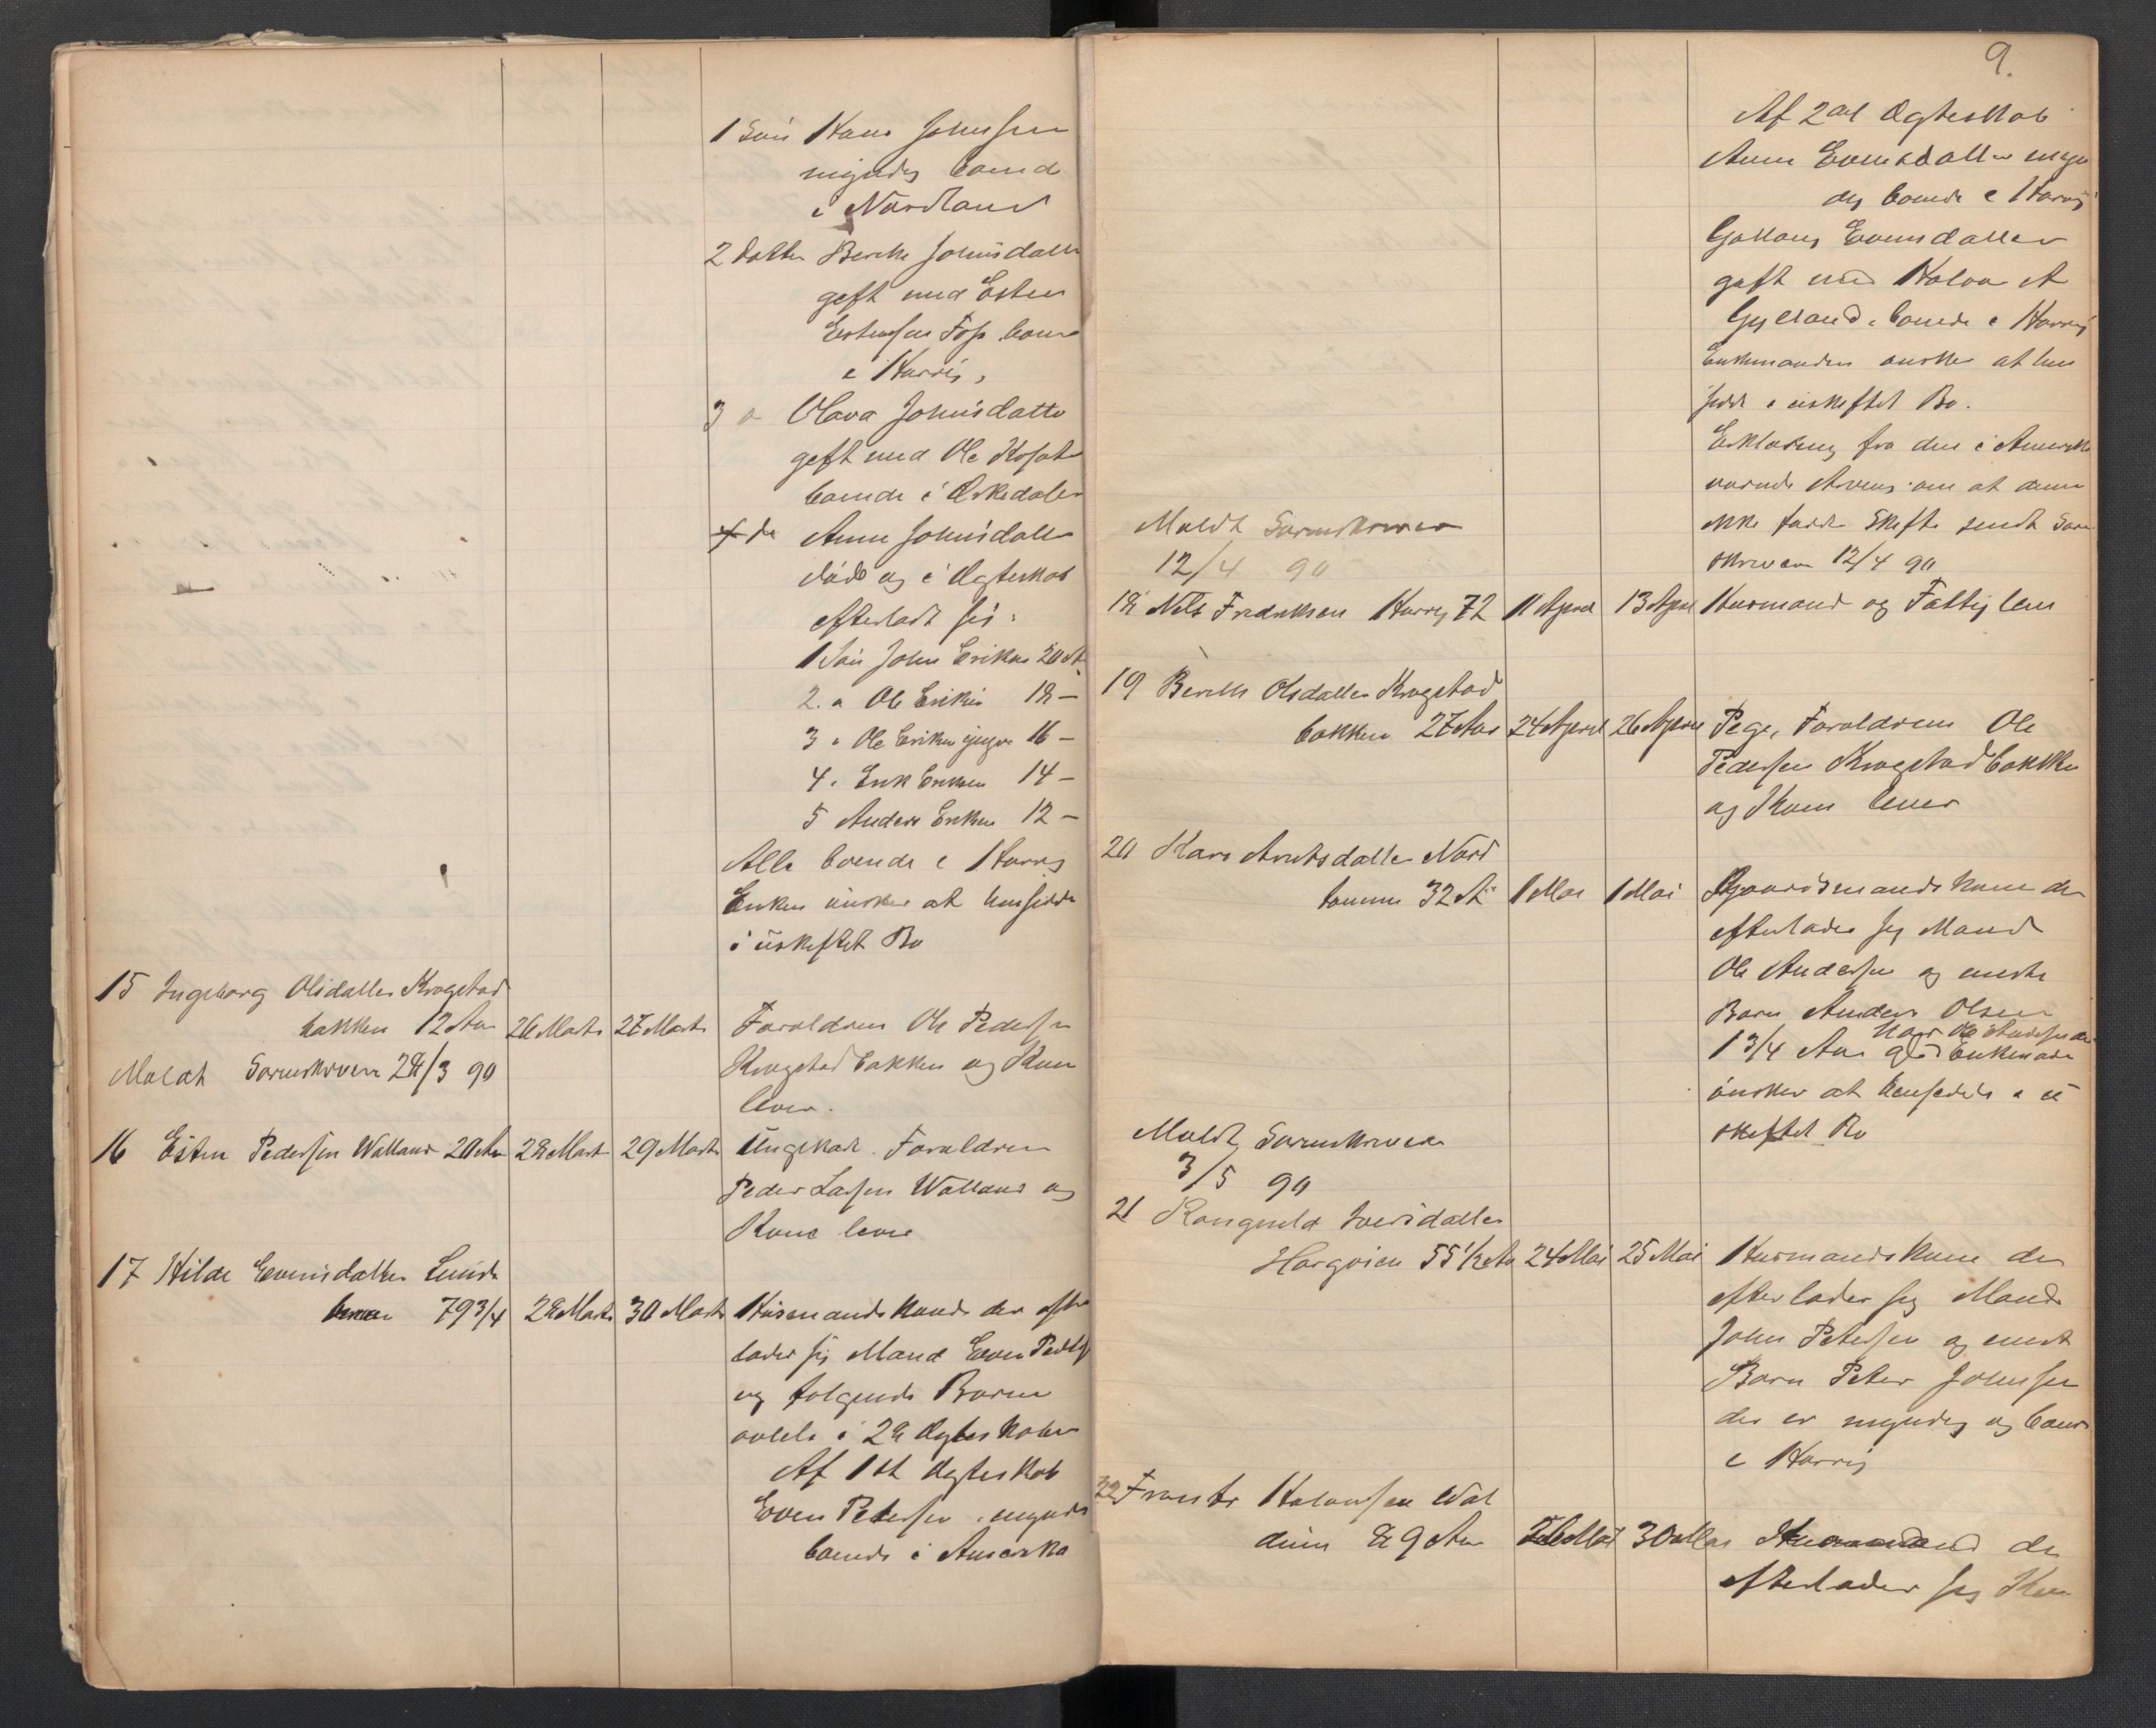 1 Søn Hans Johnsen
myndig boende
i Nordland
2 Datter Berthe Johnsdatter
gift med Esten
Estensen Foss boende
i Horrig,
3 " Olava Johnsdatter
gift med Ole
boende i Orkedalen
4 do Anne Johnsdatter
død og i Ægteskab
efterladt sig:
1 Søn John Eriksen 20 A
2. " Ole Eriksen 18 –
3 " Ole Eriksen yngre 16 –
4. " Erik Eriksen 14 –
5 Anders Eriksen 12 –
Alle boende i Horrig
Enken ønsker at hensidde
i uskiftet Bo
15 Ingeborg Olsdatter Krogstad
bakken 12 Aar 26 Marts 27 Marts Forældrene Ole Pedersen
Krogstadbakken og Kone
lever.
Meldt Sorenskriveren 28/3 90
16 Esten Pedersen Walland 20 Aar 28 Marts 29 Marts Ungkarl. Forældrene
Peder Larsen Walland og
Kone lever
17 Hilde Evensdatter Lunde
79 3/4 28 Marts 30 Marts Husmandskone der efter
lader sig Mand Even Peders
og følgende Børn
avlede i 2de Ægteskaber
Af 1st Ægteskab
Even Petersen, myndig
boende i Amerika
9.
Af 2det Ægteskab
Anne Evensdatter myn
dig boende i Horrig
Evensdatter
gift med Halvor A
boende i Horrig
Enkemanden ønsker at hen
sidde i uskiftet Bo.
Erklæring fra den i Amerika
værende Arving om at denne
ikke fordrer Skifte sendt Soren
skriveren 12/4 90
Meldt Sorenskriveren
12/4 90
18 Nils Fredriksen Horrig 72 11 April 13 April Husmand og Fattiglem
19 Berethe Olsdatter Krogstad
bakken 27 Aar 24 April 26 April Pige, Forældrene Ole
Pedersen Krogstadbakken
og Kone lever
20 Kari Arntsdatter Nord
tømme 32 A 1 Mai 1 Mai Gaardmandskone der
efterlader sig Mand
Ole Andersen og eneste
Barn Anders Olsen
1 3/4 Aar gl
Enkemanden
ønsker at hensidde i u
skiftet Bo
Meldt Sorenskriveren
3/5 90
21 Rangnild Iversdatter
Hargvien 55 1/2 Aar 24 Mai 25 Mai Husmandskone der
efterlader sig Mand
John Petersen og eneste
Barn Peter Johnsen
der er myndig og boende
i Horrig
22 Halvorsen Wol
dum 89 Aar Mai 30 Mai Husmand der
efterlader sig Kone